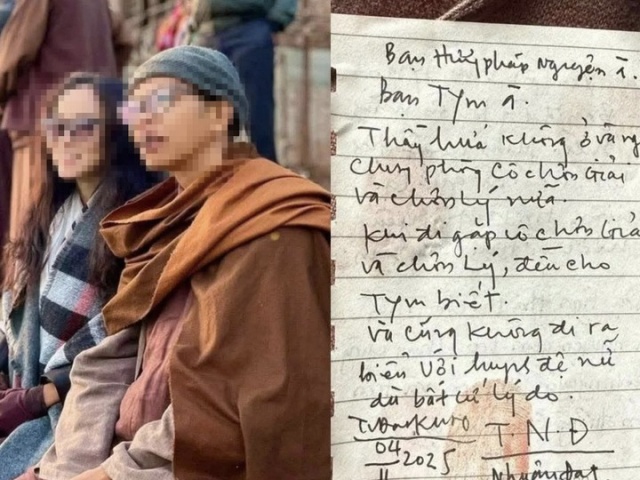 Bạn Hướng pháp Nguyện à.
Bạn Tym à.
Thầy hứa không ở và ng
chung phòng cô chơn Giải
và chơn Lý nữa.
Khi đi gặp cô chơn Giả
và chơn Lý, đều cho
Tym biết.
và cũng không đi ra
biển với huynh đệ nữ
dù bất cứ lý do.
04 T N Đ
11 2025
Nhuận Đạt